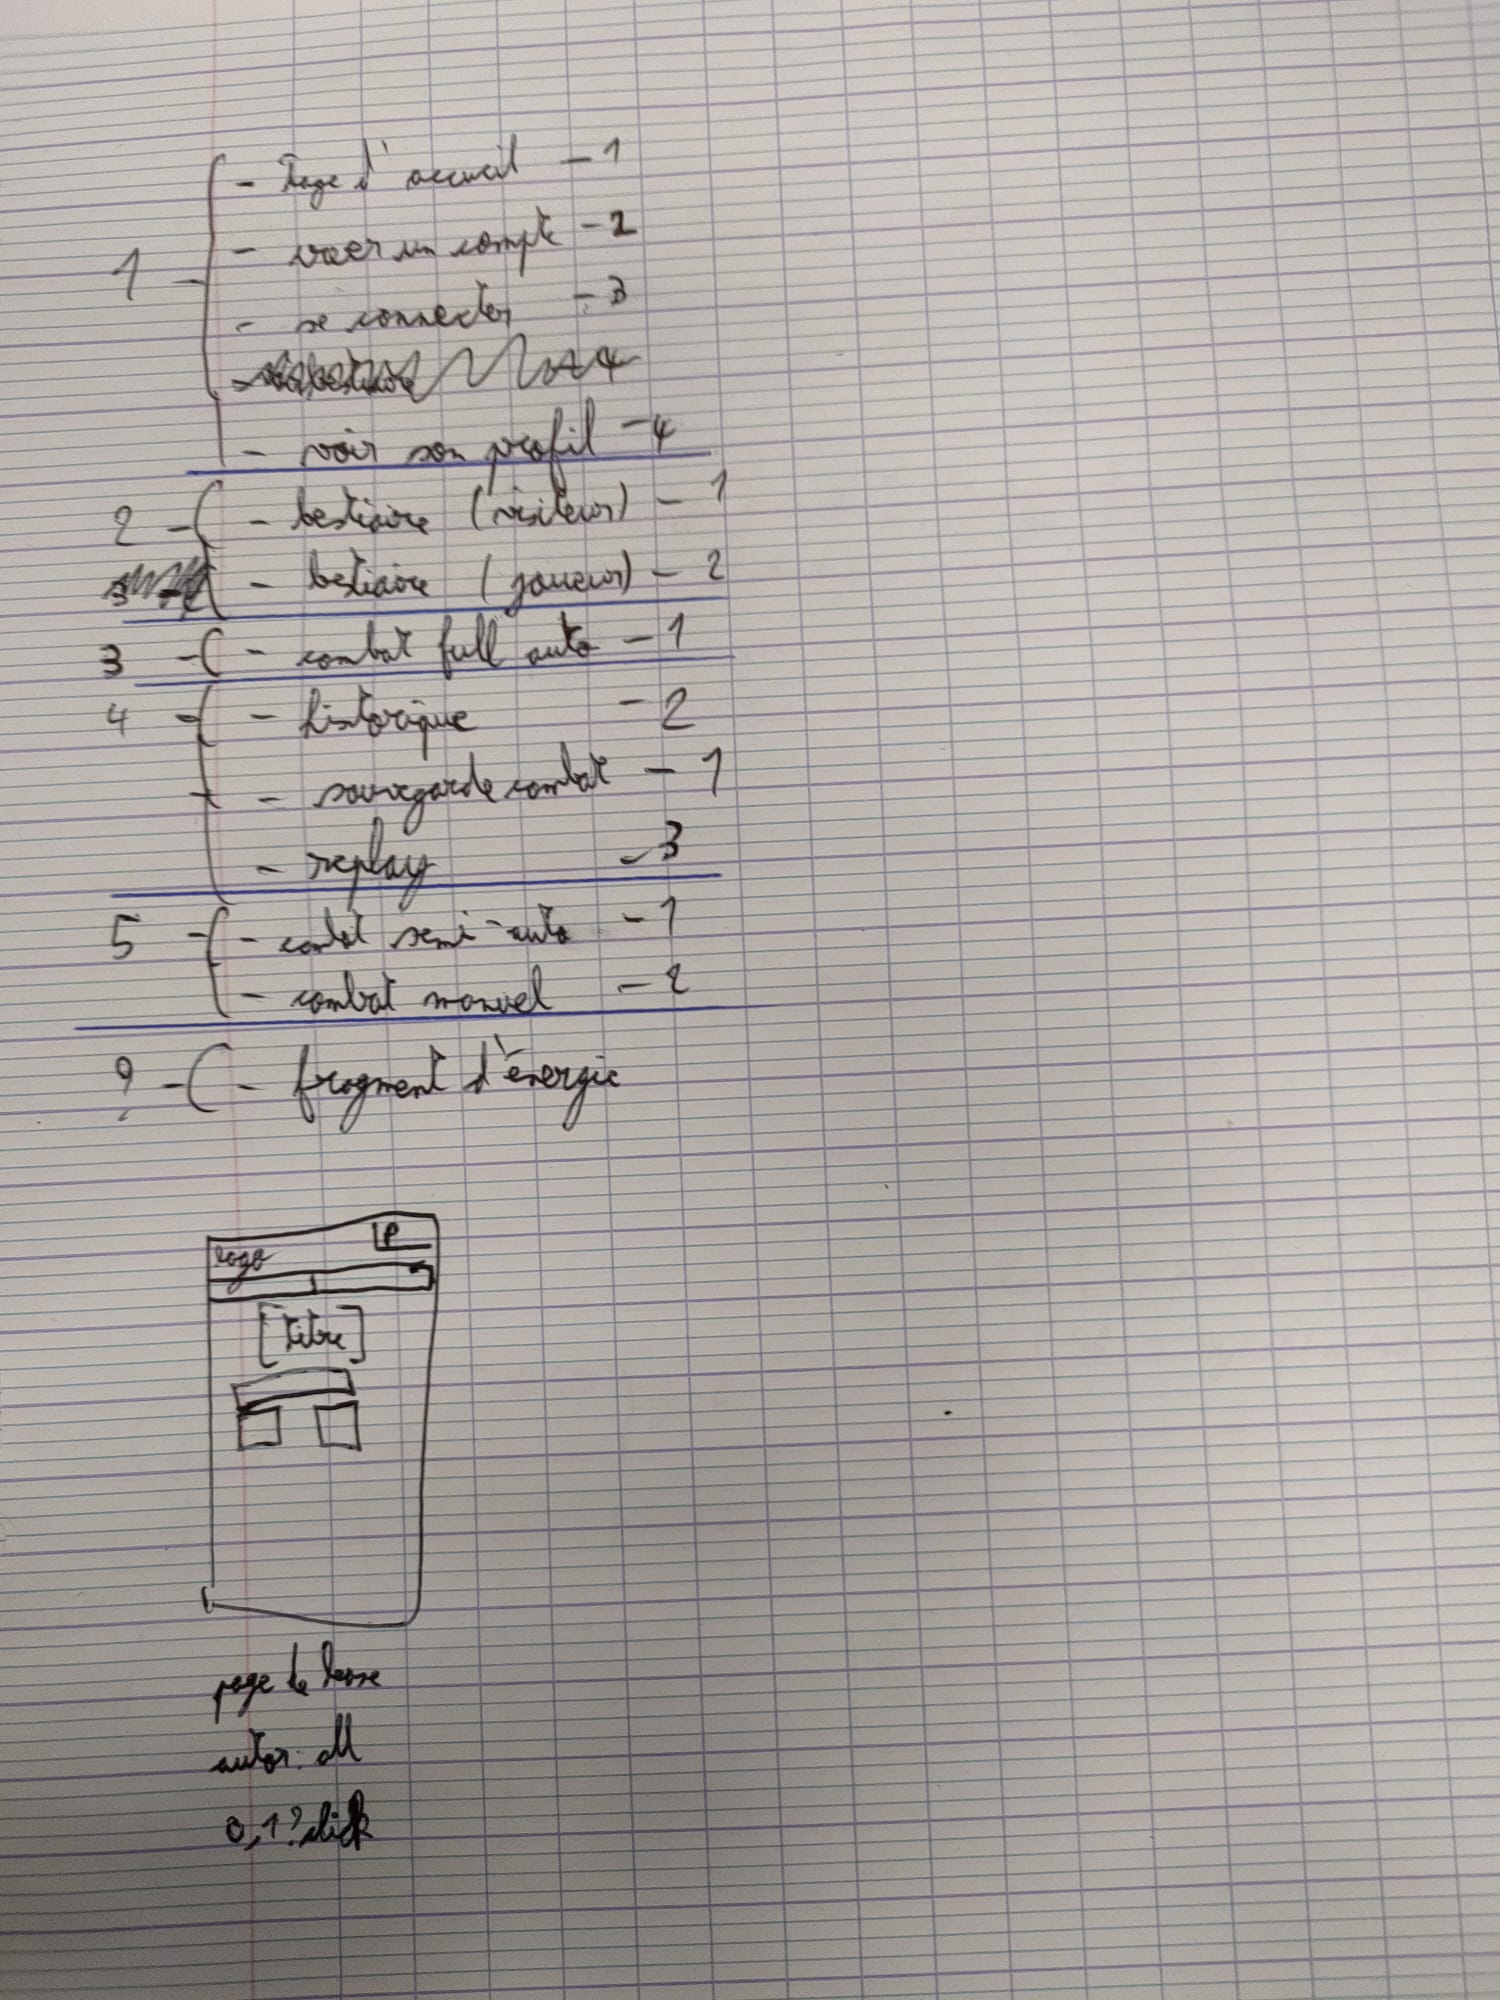 1 - Page d'accueil - 1
- créer un compte - 2
- se connecter - 3
- voir son profil - 4
2 - bestiaire (visiteur) - 1
- bestiaire (joueur) - 2
3 - - combat full auto - 1
4 - - historique - 2
- sauvegarde combat - 1
- replay - 3
5 - - combat semi-auto - 1
- combat manuel - 2
? - - fragment d'énergie
logo P
[titre]
page de base
autor: all
0,1? click